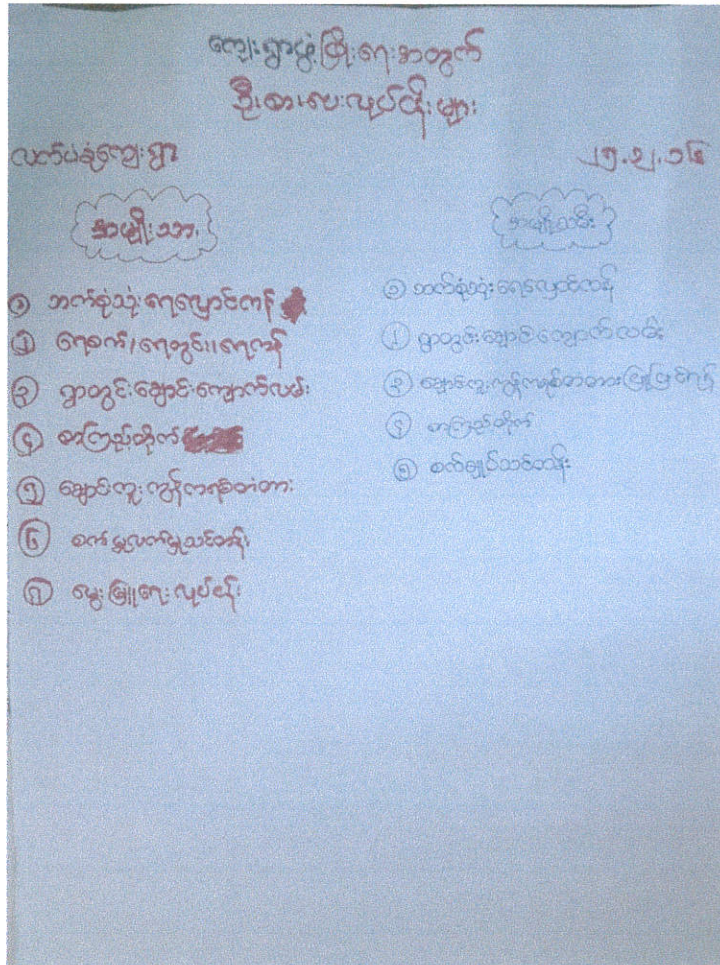 ကျေးရွာဖွံ့ဖြိုးရေးအတွက်
ဦးစားပေးလုပ်ငန်းများ
လက်ပံစုံကျေးရွာ
၂၅.၃.၁၆
အမျိုးသား
၁ ဘက်စုံသုံးရေလှောင်ကန်
၂ ရေစက်/ရေတွင်း၊ရေကန်
၃ ရွာတွင်းချောင်းကျောက်လမ်း
၄ စာကြည့်တိုက်
၅ ချောင်းကူးကွန်ကရစ်တံတား
၆ စက်မှုလက်မှုသင်တန်း
၇ မွေးမြူရေးလုပ်ငန်း
အမျိုးသမီး
၁ ဘက်စုံသုံးရေလှောင်ကန်
၂ ရွာတွင်းချောင်းကျောက်လမ်း
၃ ချောင်းကူးကွန်ကရစ်တံတားပြုပြင်ရန်
၄ စာကြည့်တိုက်
၅ စက်ချုပ်သင်တန်း